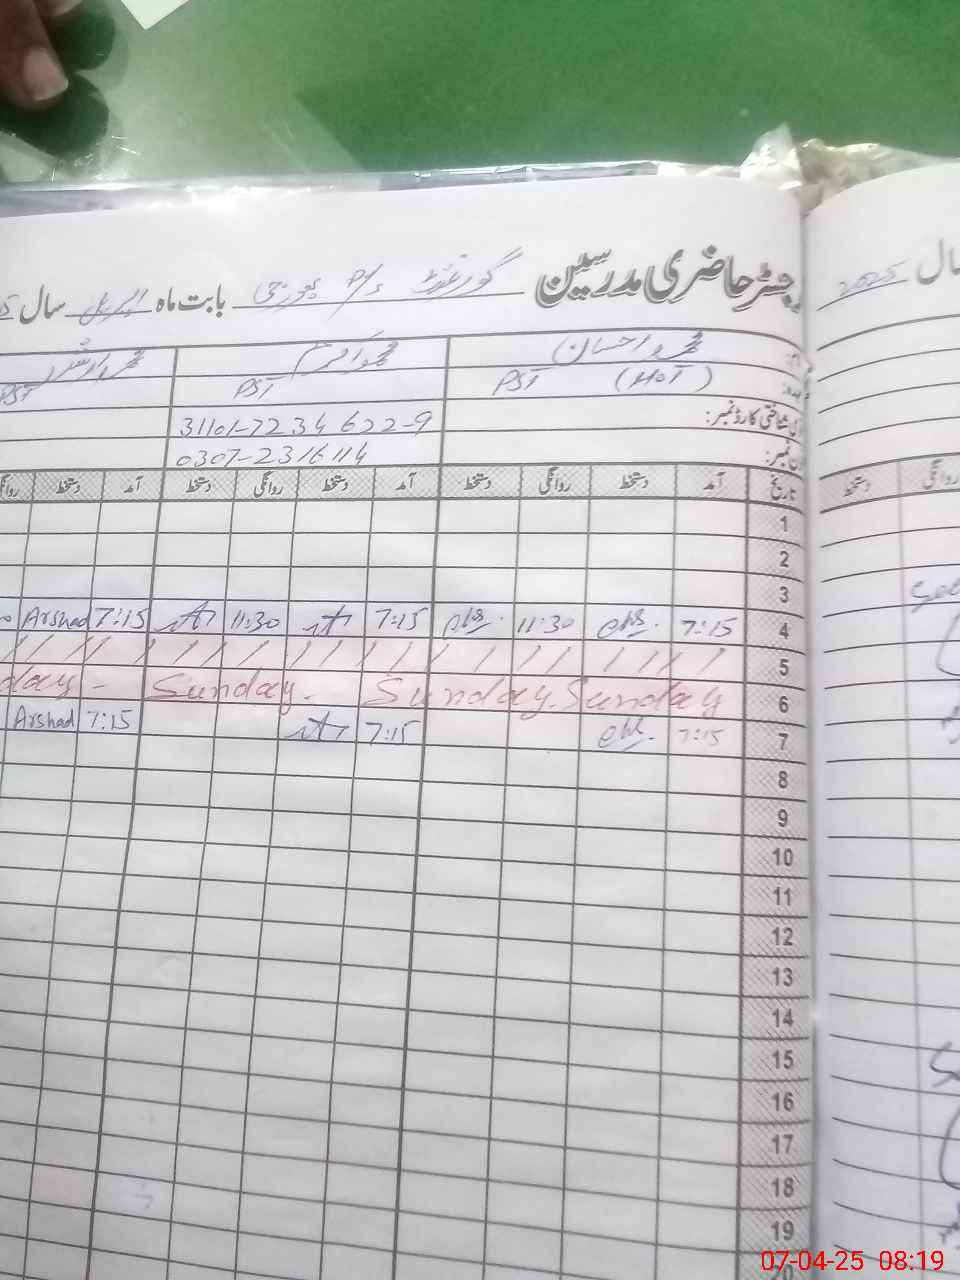 رجسٹر حاضری مدرسین گورنمنٹ P/S بابت ماہ اپریل سال
سال 2025
محمد احسان محمد اکرم محمد ارشد
PST (HOT) PST PST
شناختی کارڈ نمبر: 31101-7234622-9
فون نمبر: 0307-2316114
تاریخ آمد دستخط روانگی دستخط آمد دستخط روانگی دستخط آمد دستخط روانگی
دستخط روانگی
1
2
3
4 7:15 11:30 7:15 11:30 7:15 Arshad
5
6 Sunday Sunday. Sunday. day -
7 7:15 7:15 7:15 Arshad
8
9
10
11
12
13
14
15
16
17
18
19
20
07-04-25 08:19